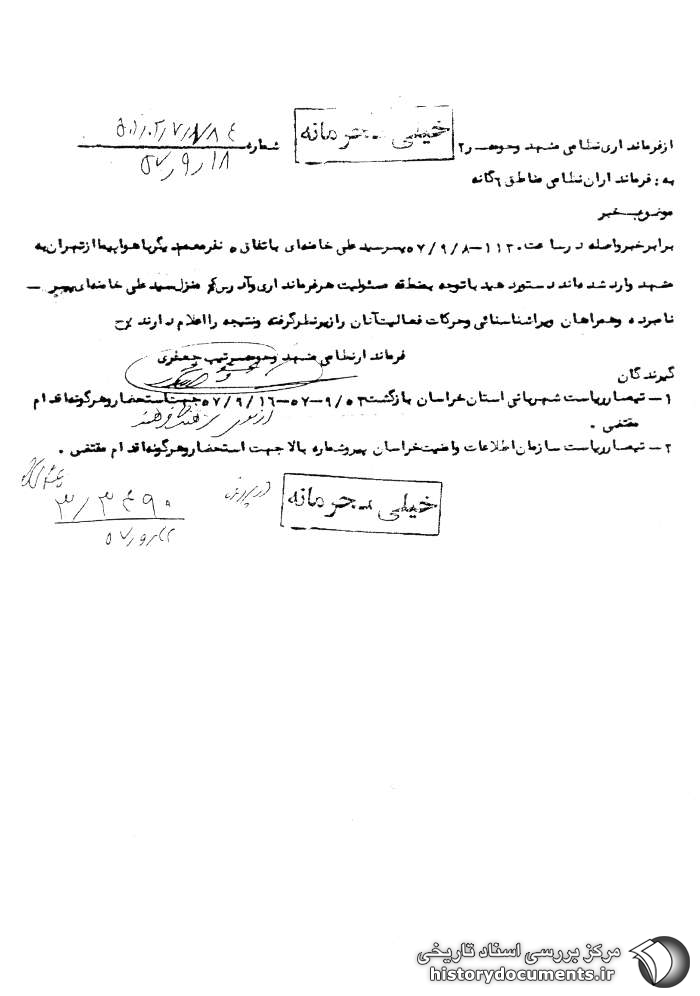 خیلی محرمانه
از فرمانداری نظامی مشهد وحومه شماره
۵۷٫۹٫۱۸
به : فرمانداران نظامی مناطق ۶ گانه
موضوع خبر
برابر خبر واصله در ساعت ۱۱۳۰-۵۷/۹/۸ پسر سید علی خامنه‌ای باتفاق ۵ نفر معمم دیگر با هواپیما از تهران به
مشهد وارد شده‌اند دستور دهید با توجه بمنطقه مسئولیت هر فرمانداری و آدرس منزل سید علی خامنه‌ای
نامبرده وهمراهان وی را شناسائی وحرکات فعالیت آنان را زیر نظر گرفته و نتیجه را اعلام دارند
فرماندار نظامی مشهد وحومه سرتیپ جعفری
گیرندگان
۱ – تیمسار ریاست شهربانی استان خراسان بازگشت ۵۷/۹/۱۶ جهت استحضار و هرگونه اقدام
مقتضی .
۲ – تیمسار ریاست سازمان اطلاعات وامنیت خراسان پیرو شماره بالا جهت استحضار و هرگونه اقدام مقتضی .
خیلی محرمانه
۳/۳۴۹۰
مرکز بررسی اسناد تاریخی
historydocuments.ir